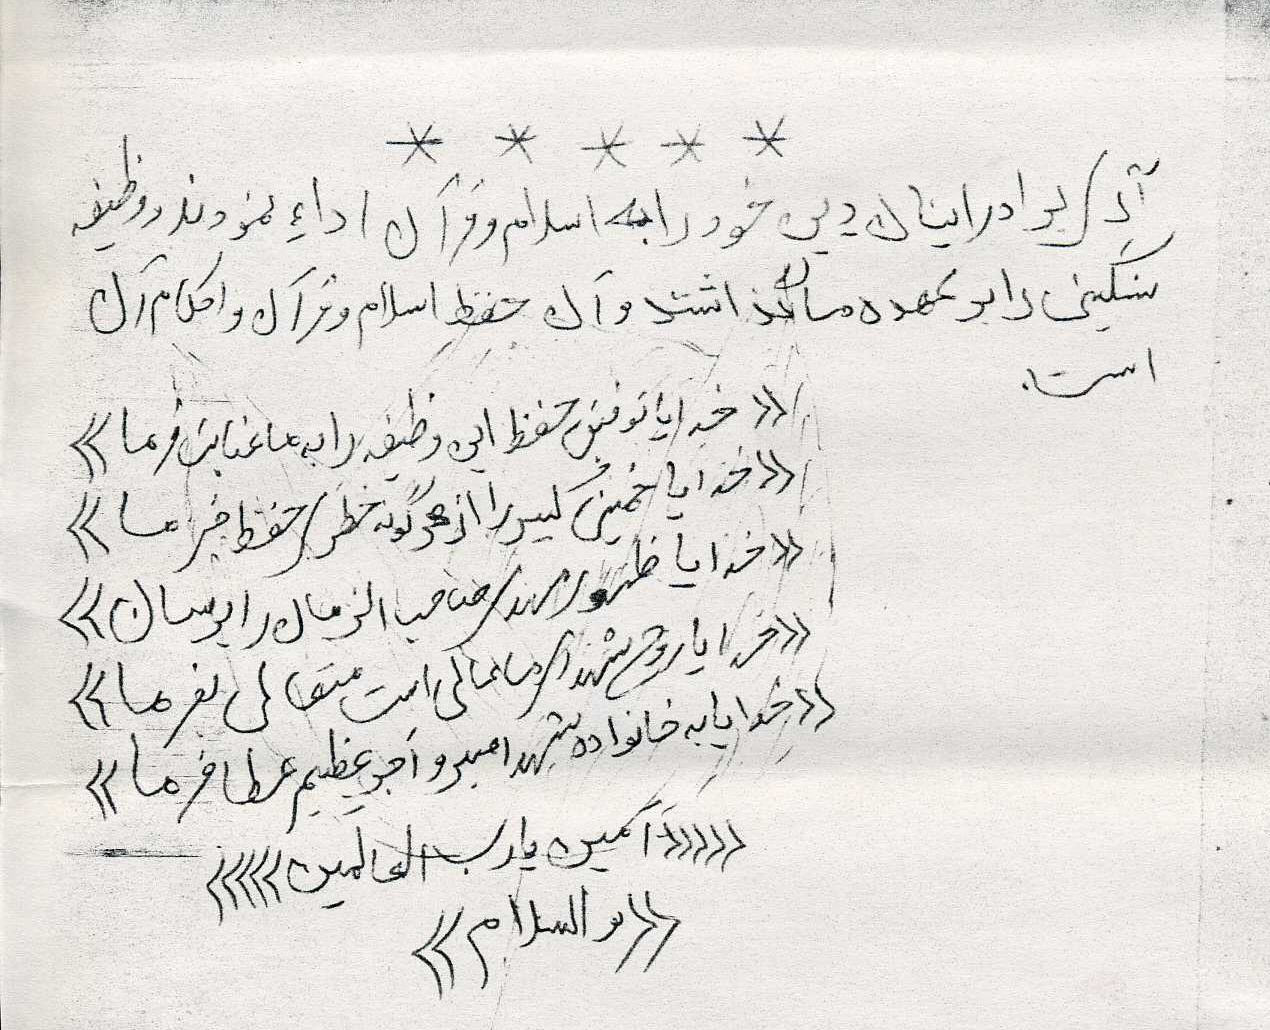 * * * * *
آری برادر اینان دین خود را به اسلام و قرآن اداء نمودند و وظیفه
سنگینی را بر عهده ما گذاشتند و آن حفظ اسلام و قرآن و احکام آن
است.
«خدایا توفیق حفظ این وظیفه را به ما عنایت فرما»
«خدایا خمینی کبیر را از هر گونه خطری حفظ فرما»
«خدایا ظهور مهدی صاحب الزمان را برسان»
«خدایا روح شهدای ما عالی است متعالی بفرما»
«خدایا به خانواده شهدا صبر و اجر عظیم عطا فرما»
«««آمین یا رب العالمین»»»
«والسلام»